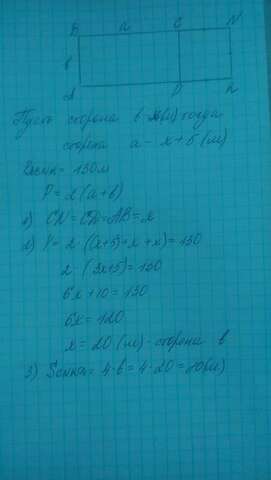 В a C N
в
А D K
Пусть сторона в x(м) тогда
сторона a - x+5 (м)
= 130м
P = 2(a+в)
1) CN=CD=AB=x
2) P= 2·(x+5)+x+x)=130
2·(3x+5)=130
6x+10=130
6x=120
x=20(м)-сторона в
3) = 4·в= 4·20=80(м)